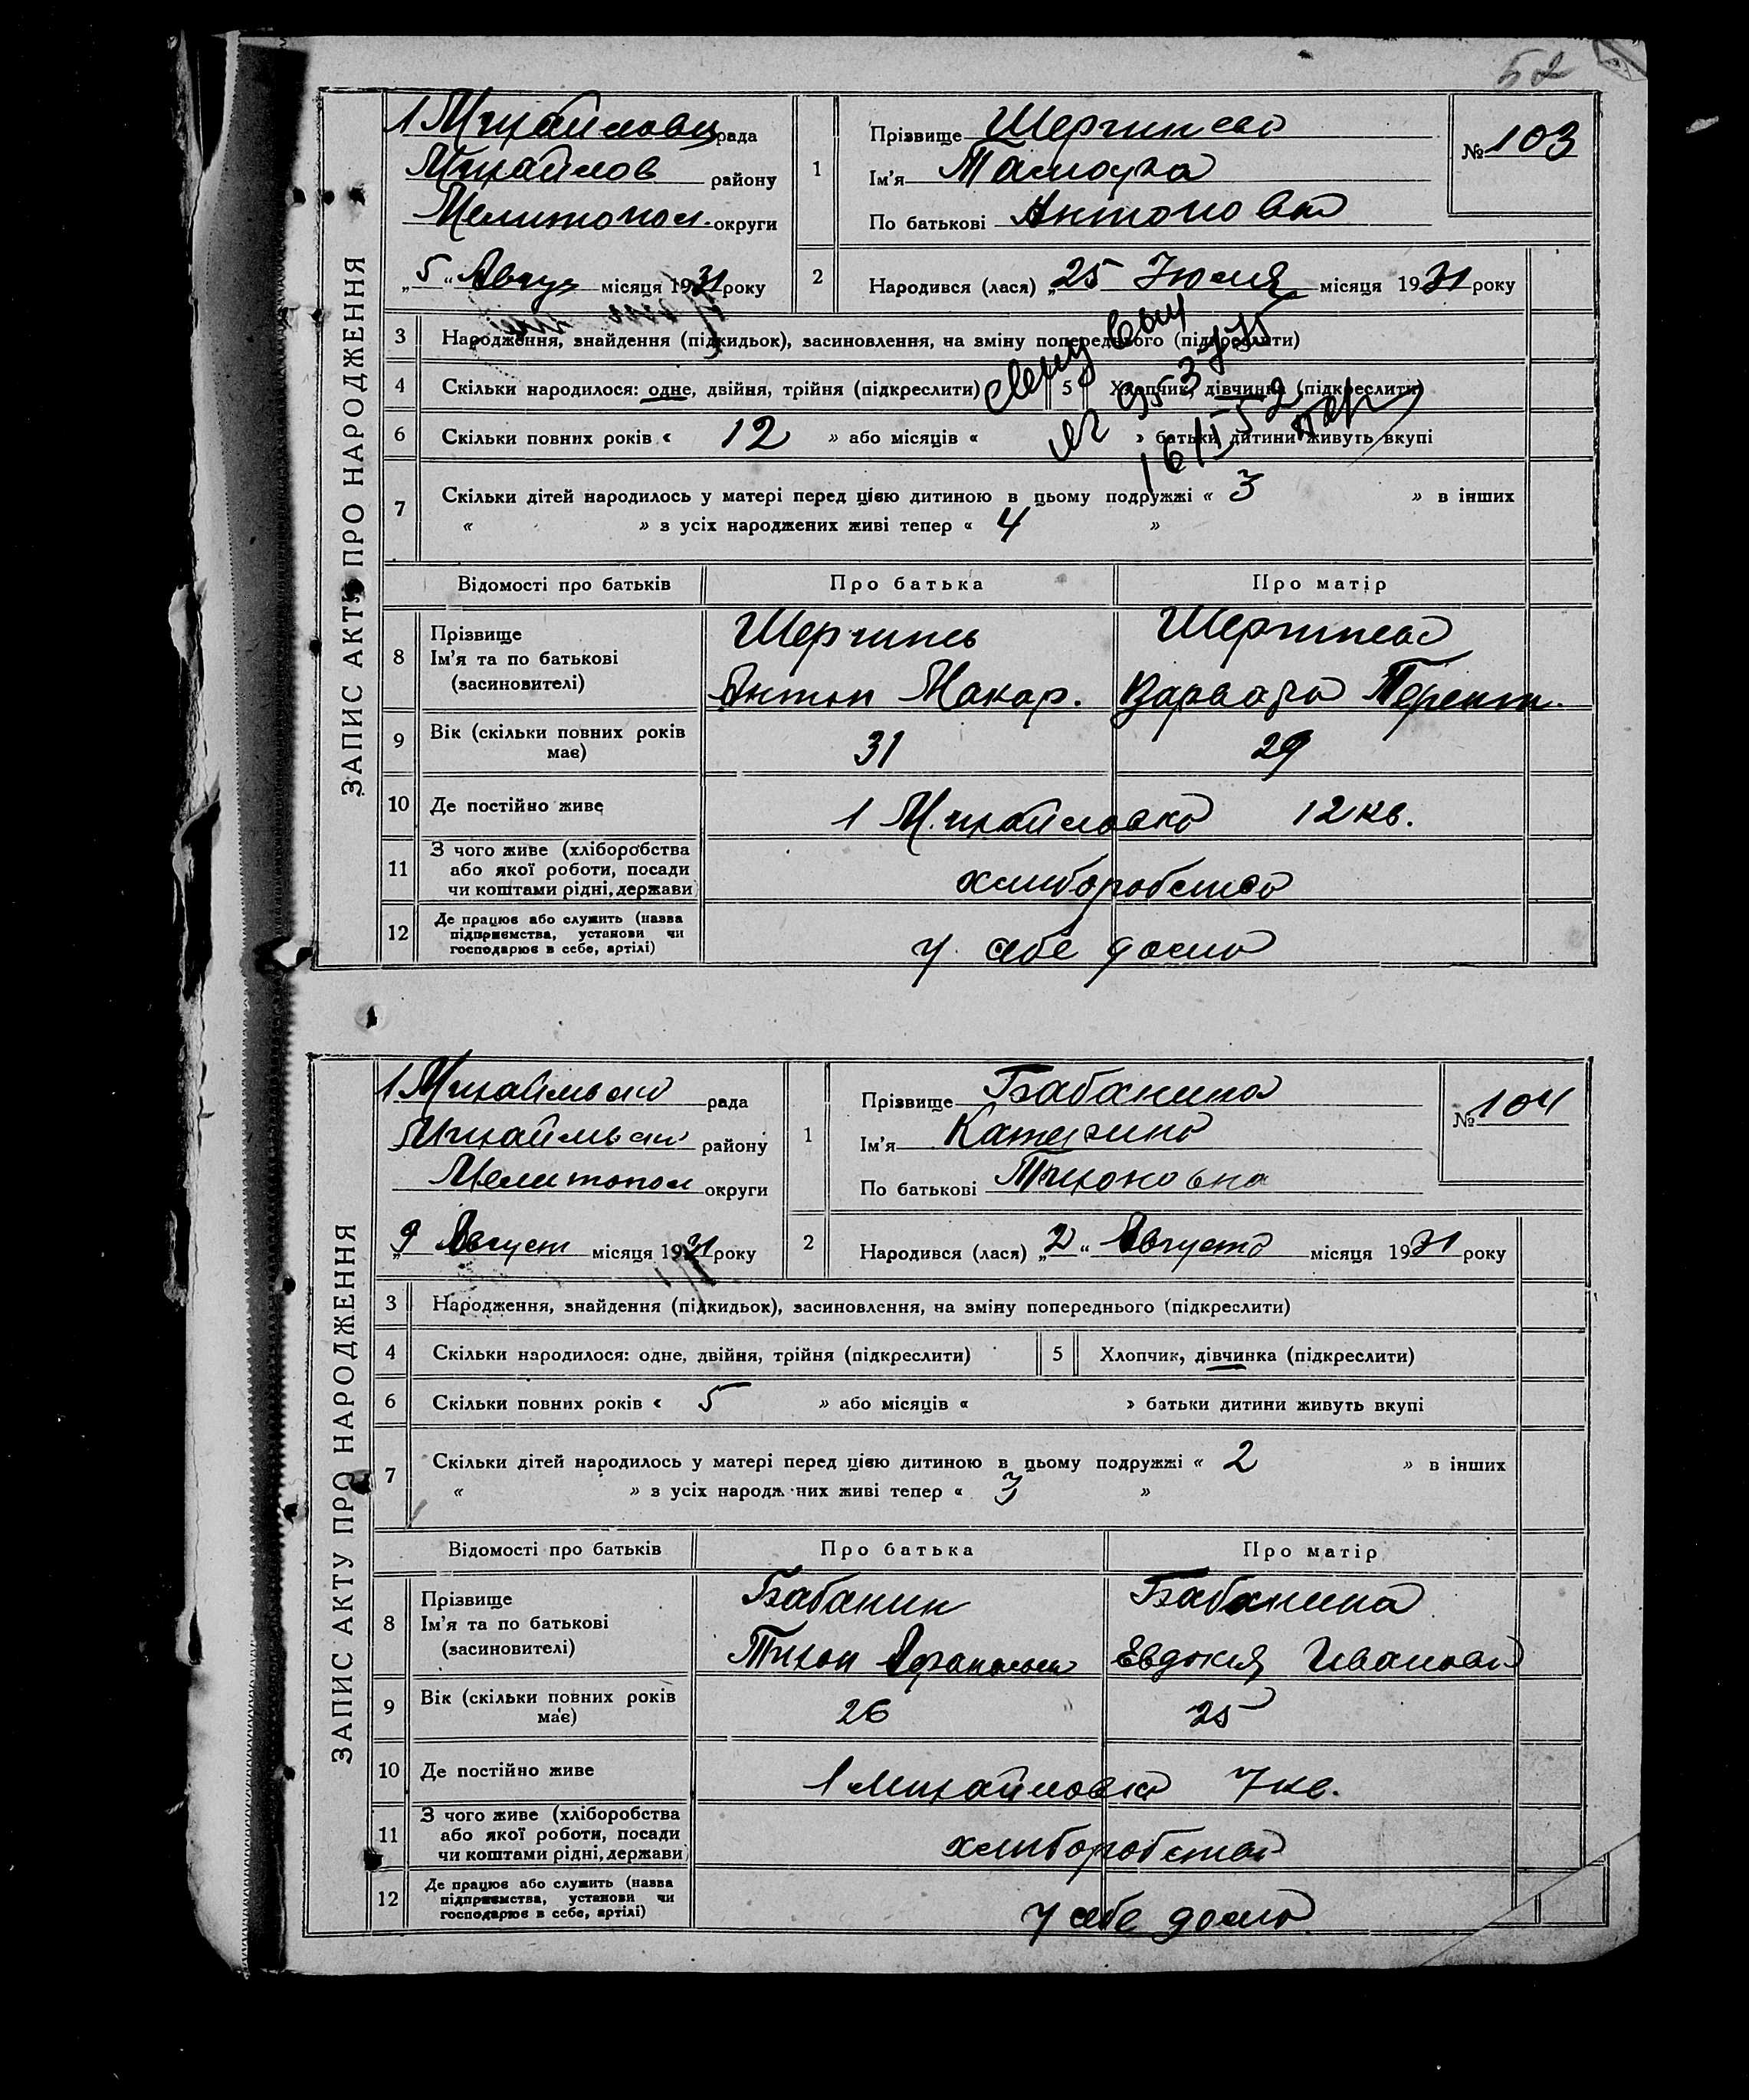 52
ЗАПИС АКТУ ПРО НАРОДЖЕННЯ
1 Михайловц рада
Михайлов району
Мелитопол. округи
„5“ Авгус місяця 1931 року
1 Прізвище
Ім'я Тамара
По батькові Антонова
№ 103
2 Народився (лася) „25 Июля місяця 1931 року
3 Народження, знайдення (підкидьок), засиновлення, на зміну попереднього (підкреслити)
4 Скільки народилося: одне, двійня, трійня (підкреслити)
5 Хлопчик, дівчинка (підкреслити)
6 Скільки повних років « 12 » або місяців « » батьки дитини живуть вкупі
7 Скільки дітей народилось у матері перед цією дитиною в цьому подружжі « 3 » в інших
« » з усіх народжених живі тепер « 4 »
Відомості про батьків Про батька Про матір
8 Прізвище
Ім'я та по батькові
(засиновителі)
Антон Макар. Варвара Терент.
9 Вік (скільки повних років
має) 31 29
10 Де постійно живе 1 Михайловка 12 кв.
11 З чого живе (хліборобства
або якої роботи, посади
чи коштами рідні, держави)
хлиборобства
12 Де працює або служить (назва
підприємства, установи чи
господарює в себе, артілі)
у себе дома
ЗАПИС АКТУ ПРО НАРОДЖЕННЯ
1 рада
району
Мелитопол округи
„9 Август місяця 1931 року
1 Прізвище Бабанина
Ім'я Катерина
По батькові Тихоновна
№ 104
2 Народився (лася) „2“ Августа місяця 1931 року
3 Народження, знайдення (підкидьок), засиновлення, на зміну попереднього (підкреслити)
4 Скільки народилося: одне, двійня, трійня (підкреслити)
5 Хлопчик, дівчинка (підкреслити)
6 Скільки повних років « 5 » або місяців « » батьки дитини живуть вкупі
7 Скільки дітей народилось у матері перед цією дитиною в цьому подружжі « 2 » в інших
« » з усіх народж них живі тепер « 3 »
Відомості про батьків Про батька Про матір
8 Прізвище
Ім'я та по батькові
(засиновителі)
Бабанин Бабанина
Тихон Евдокия Иванова
9 Вік (скільки повних років
має) 26 25
10 Де постійно живе 1 Михайловка 7 кв.
11 З чого живе (хліборобства
або якої роботи, посади
чи коштами рідні, держави)
хлиборобства
12 Де працює або служить (назва
підприємства, установи чи
господарює в себе, артілі)
у себе дома